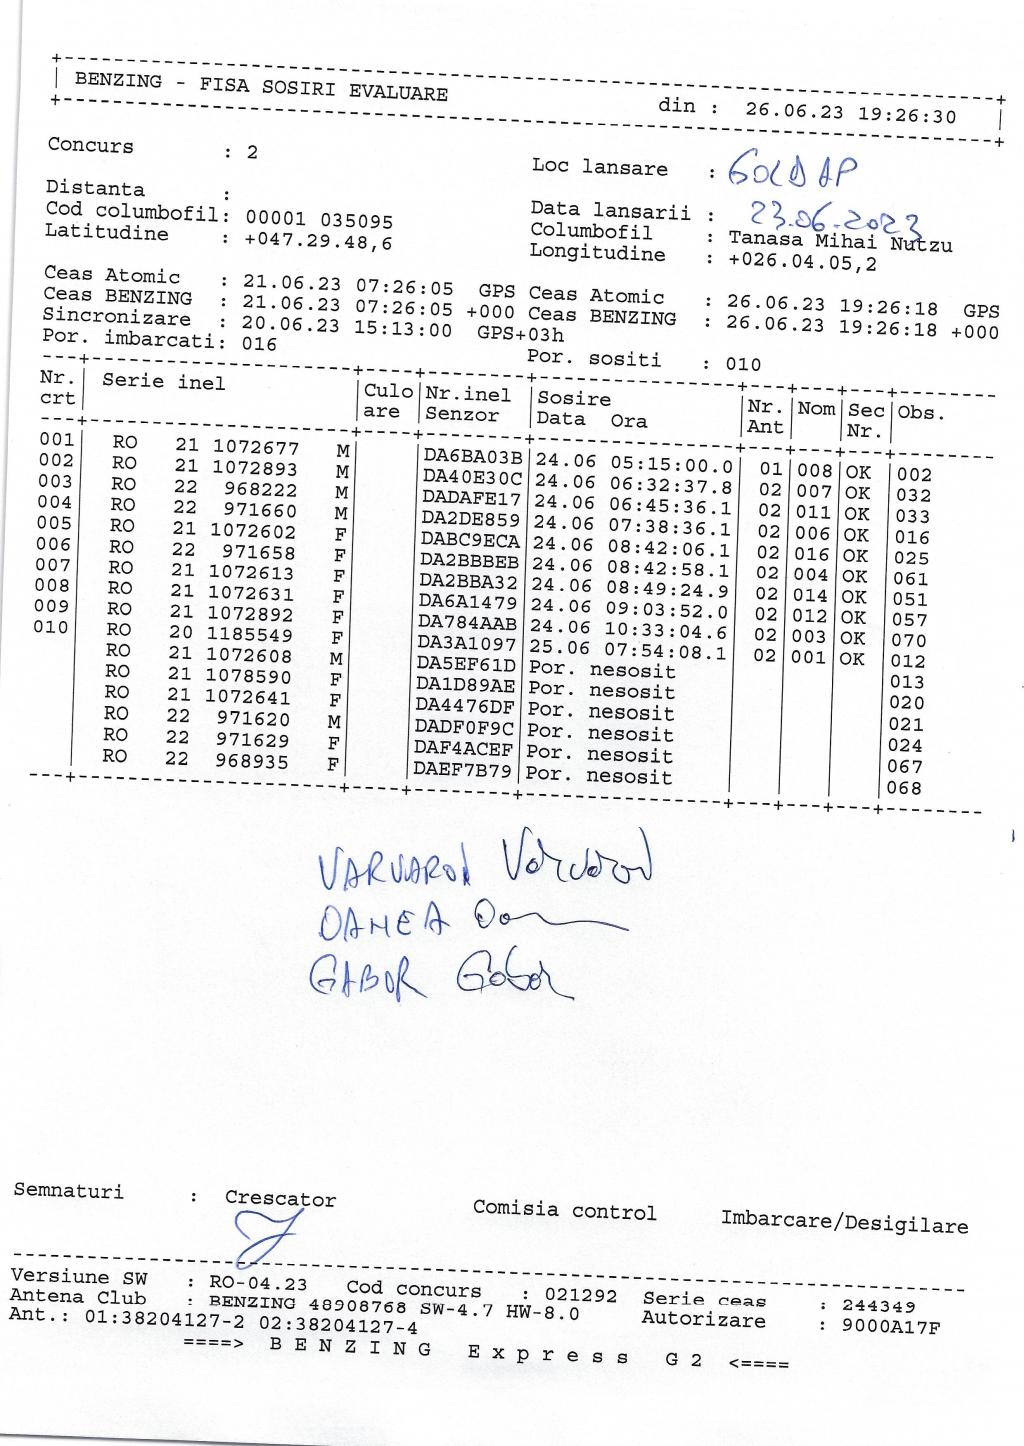 BENZING - FISA SOSIRI EVALUARE din : 26.06.23 19:26:30
Concurs : 2 Loc lansare : GOLDAP
Distanta : Data lansarii : 23.06.2023
Cod columbofil: 00001 035095 Columbofil : Tanasa Mihai Nutzu
Latitudine : +047.29.48,6 Longitudine : +026.04.05,2
Ceas Atomic : 21.06.23 07:26:05 GPS Ceas Atomic : 26.06.23 19:26:18 GPS
Ceas BENZING : 21.06.23 07:26:05 +000 Ceas BENZING : 26.06.23 19:26:18 +000
Sincronizare : 20.06.23 15:13:00 GPS+03h
Por. imbarcati: 016 Por. sositi : 010
Nr. Serie inel Culo Nr.inel Sosire Nr. Nom Sec Obs.
crt are Senzor Data Ora Ant Nr.
001 RO 21 1072677 M DA6BA03B 24.06 05:15:00.0 01 008 OK 002
002 RO 21 1072893 M DA40E30C 24.06 06:32:37.8 02 007 OK 032
003 RO 22 968222 M DADAFE17 24.06 06:45:36.1 02 011 OK 033
004 RO 22 971660 M DA2DE859 24.06 07:38:36.1 02 006 OK 016
005 RO 21 1072602 F DABC9ECA 24.06 08:42:06.1 02 016 OK 025
006 RO 22 971658 F DA2BBBEB 24.06 08:42:58.1 02 004 OK 061
007 RO 21 1072613 F DA2BBA32 24.06 08:49:24.9 02 014 OK 051
008 RO 21 1072631 F DA6A1479 24.06 09:03:52.0 02 012 OK 057
009 RO 21 1072892 F DA784AAB 24.06 10:33:04.6 02 003 OK 070
010 RO 20 1185549 F DA3A1097 25.06 07:54:08.1 02 001 OK 012
RO 21 1072608 M DA5EF61D Por. nesosit 013
RO 21 1078590 F DA1D89AE Por. nesosit 020
RO 21 1072641 F DA4476DF Por. nesosit 021
RO 22 971620 M DADF0F9C Por. nesosit 024
RO 22 971629 F DAF4ACEF Por. nesosit 067
RO 22 968935 F DAEF7B79 Por. nesosit 068
VARVAROI
DANEA
GABOR Gabor
Semnaturi : Crescator Comisia control Imbarcare/Desigilare
Versiune SW : RO-04.23 Cod concurs : 021292 Serie ceas : 244349
Antena Club : BENZING 48908768 SW-4.7 HW-8.0 Autorizare : 9000A17F
Ant.: 01:38204127-2 02:38204127-4
====> B E N Z I N G E x p r e s s G 2 <====